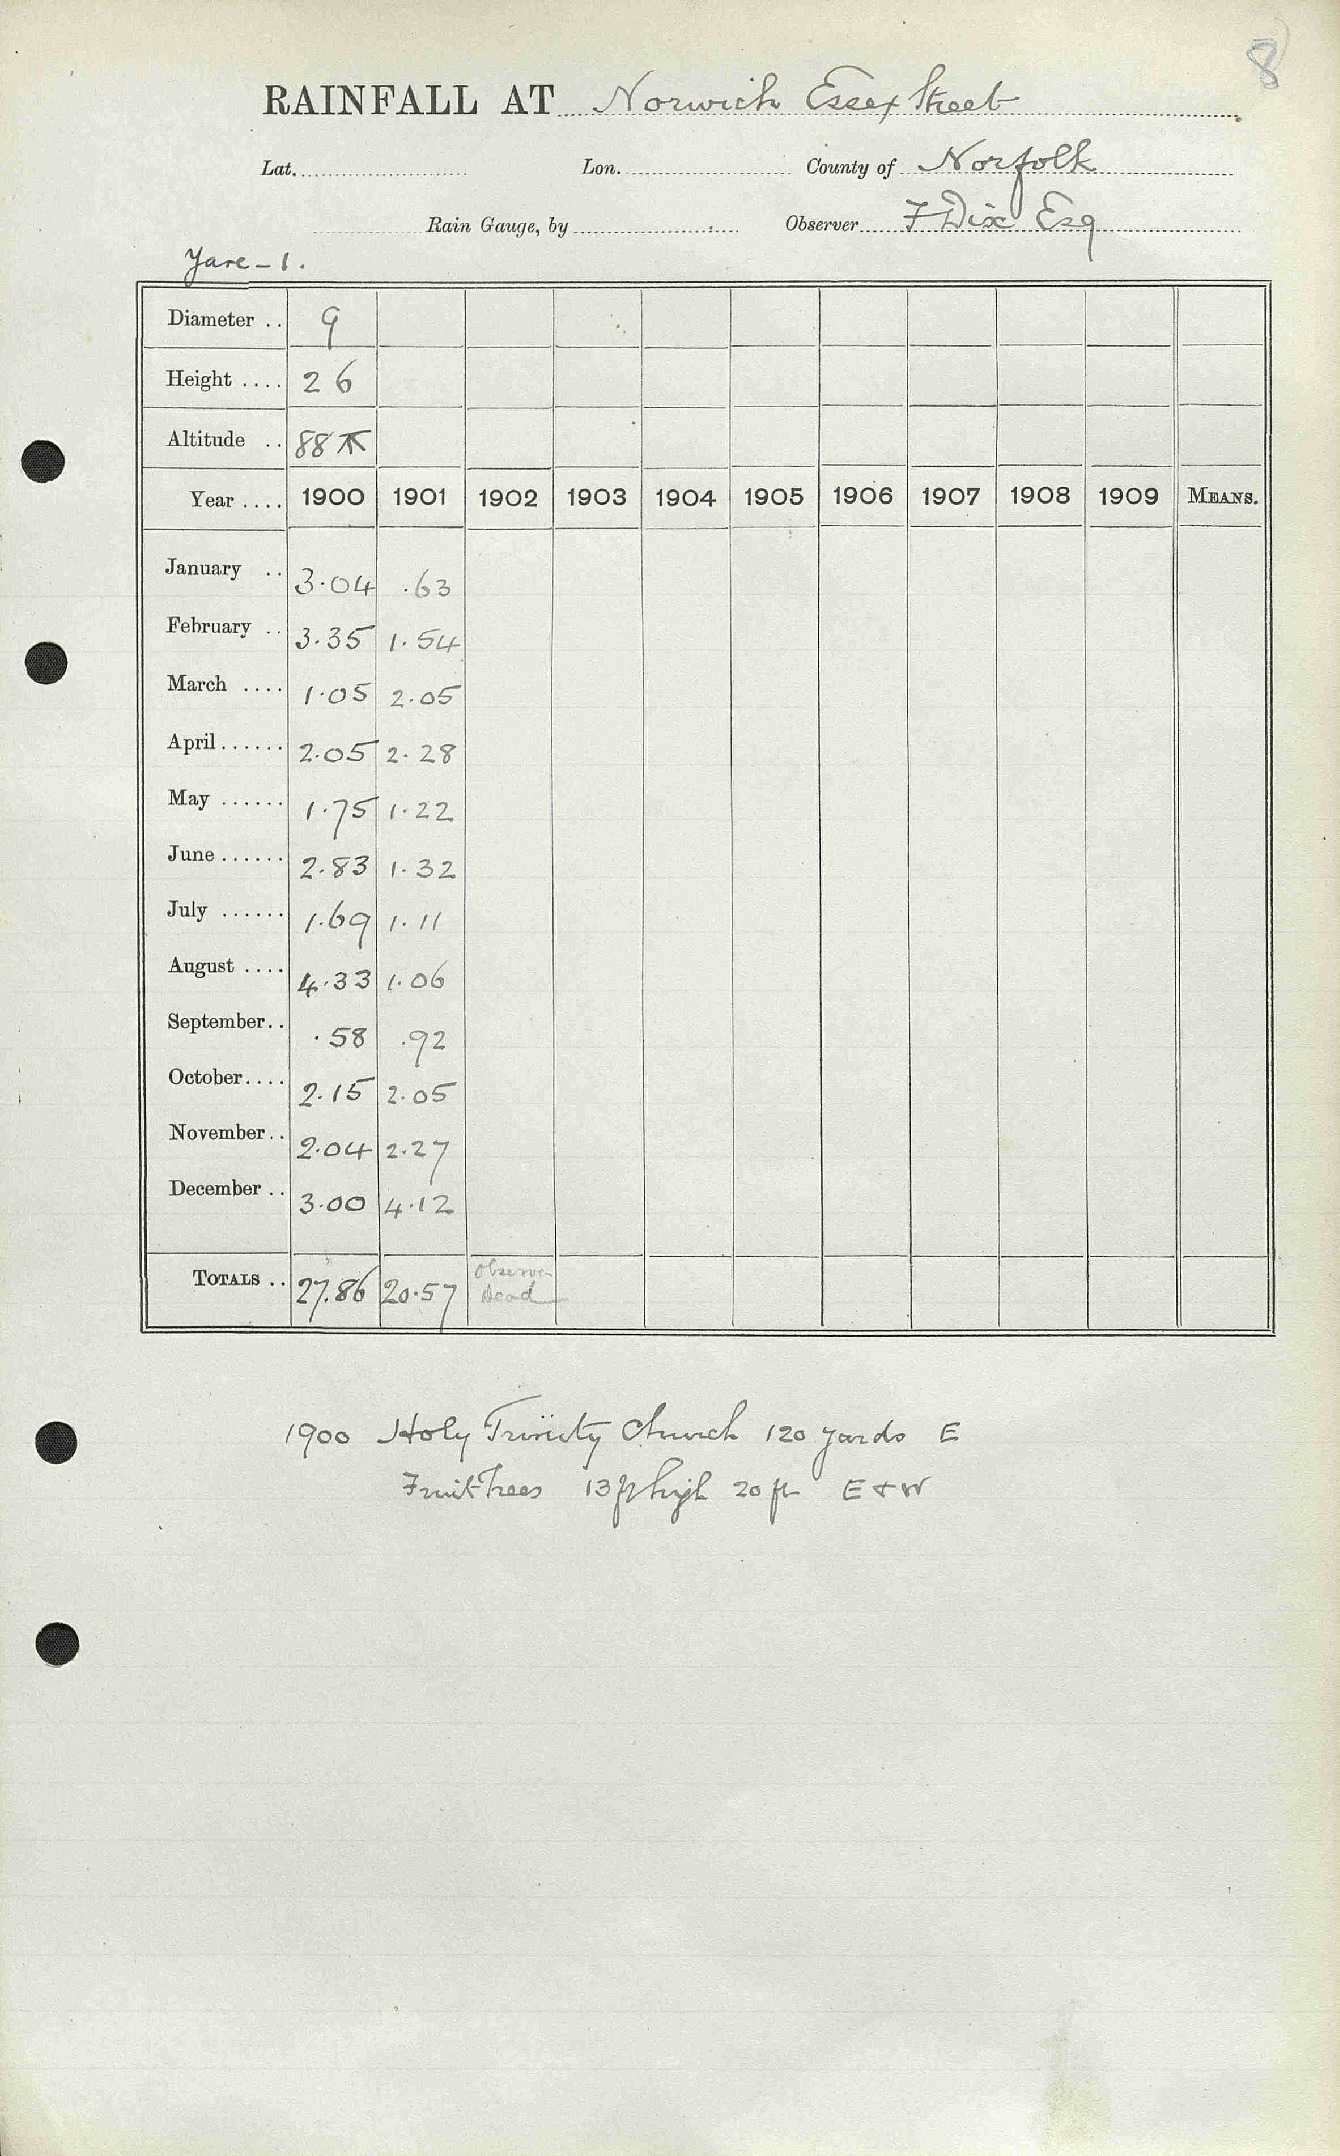 8
RAINFALL AT Norwich Essex Street
Lat. Lon. County of Norfolk
Rain Gauge, by Observer F Dix Esq
Yare - 1.
Diameter .. 9
Height .... 2 6
Altitude .. 88
Year .... 1900 1901 1902 1903 1904 1905 1906 1907 1908 1909 MEANS.
January .. 3.04 .63
February .. 3.35 1.54
March .... 1.05 2.05
April ...... 2.05 2.28
May ...... 1.75 1.22
June ...... 2.83 1.32
July ...... 1.69 1.11
August .... 4.33 1.06
September.. .58 .92
October.... 2.15 2.05
November.. 2.04 2.27
December .. 3.00 4.12
TOTALS .. 27.86 20.57 Observer
Dead
1900 Holy Trinity Church 120 yards E
Fruit Trees 13 ft high 20 ft E & W